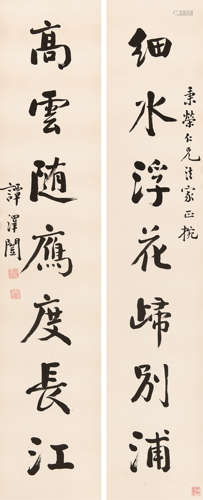 秉榮仁兄法家正捥
細水浮花歸別浦
高雲随鴈度長江
譚澤闓